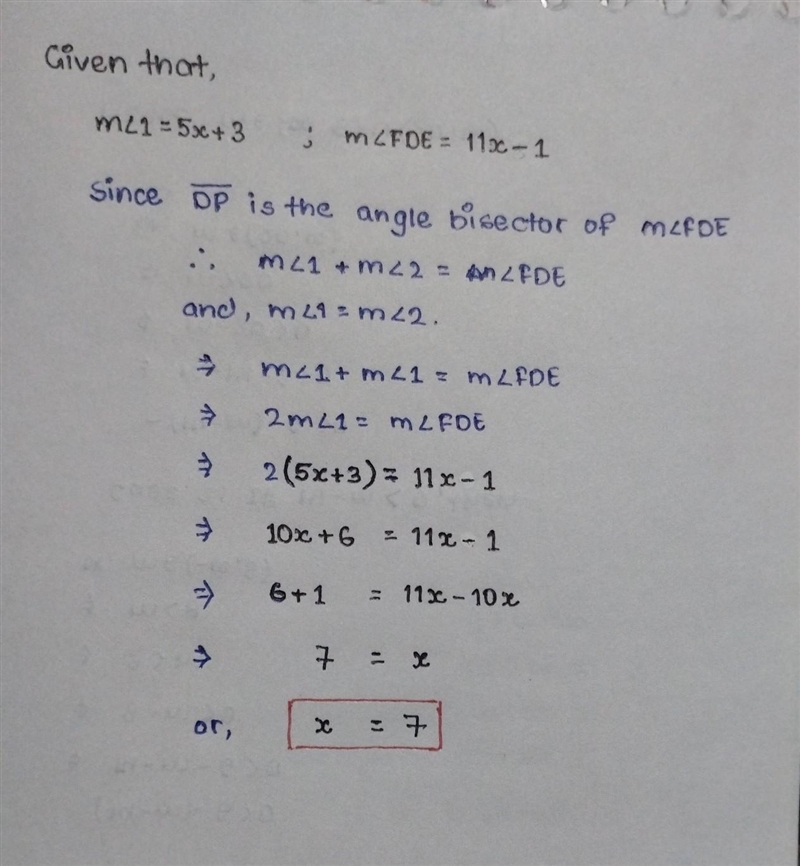 Given that,
m∠1 = 5x+3 ; m∠FDE = 11x - 1
Since D̅P̅ is the angle bisector of m∠FDE
∴ m∠1 + m∠2 = m∠FDE
and, m∠1 = m∠2.
⇒ m∠1 + m∠1 = m∠FDE
⇒ 2m∠1 = m∠FDE
⇒ 2(5x+3) = 11x - 1
⇒ 10x+6 = 11x - 1
⇒ 6+1 = 11x - 10x
⇒ 7 = x
or, x = 7